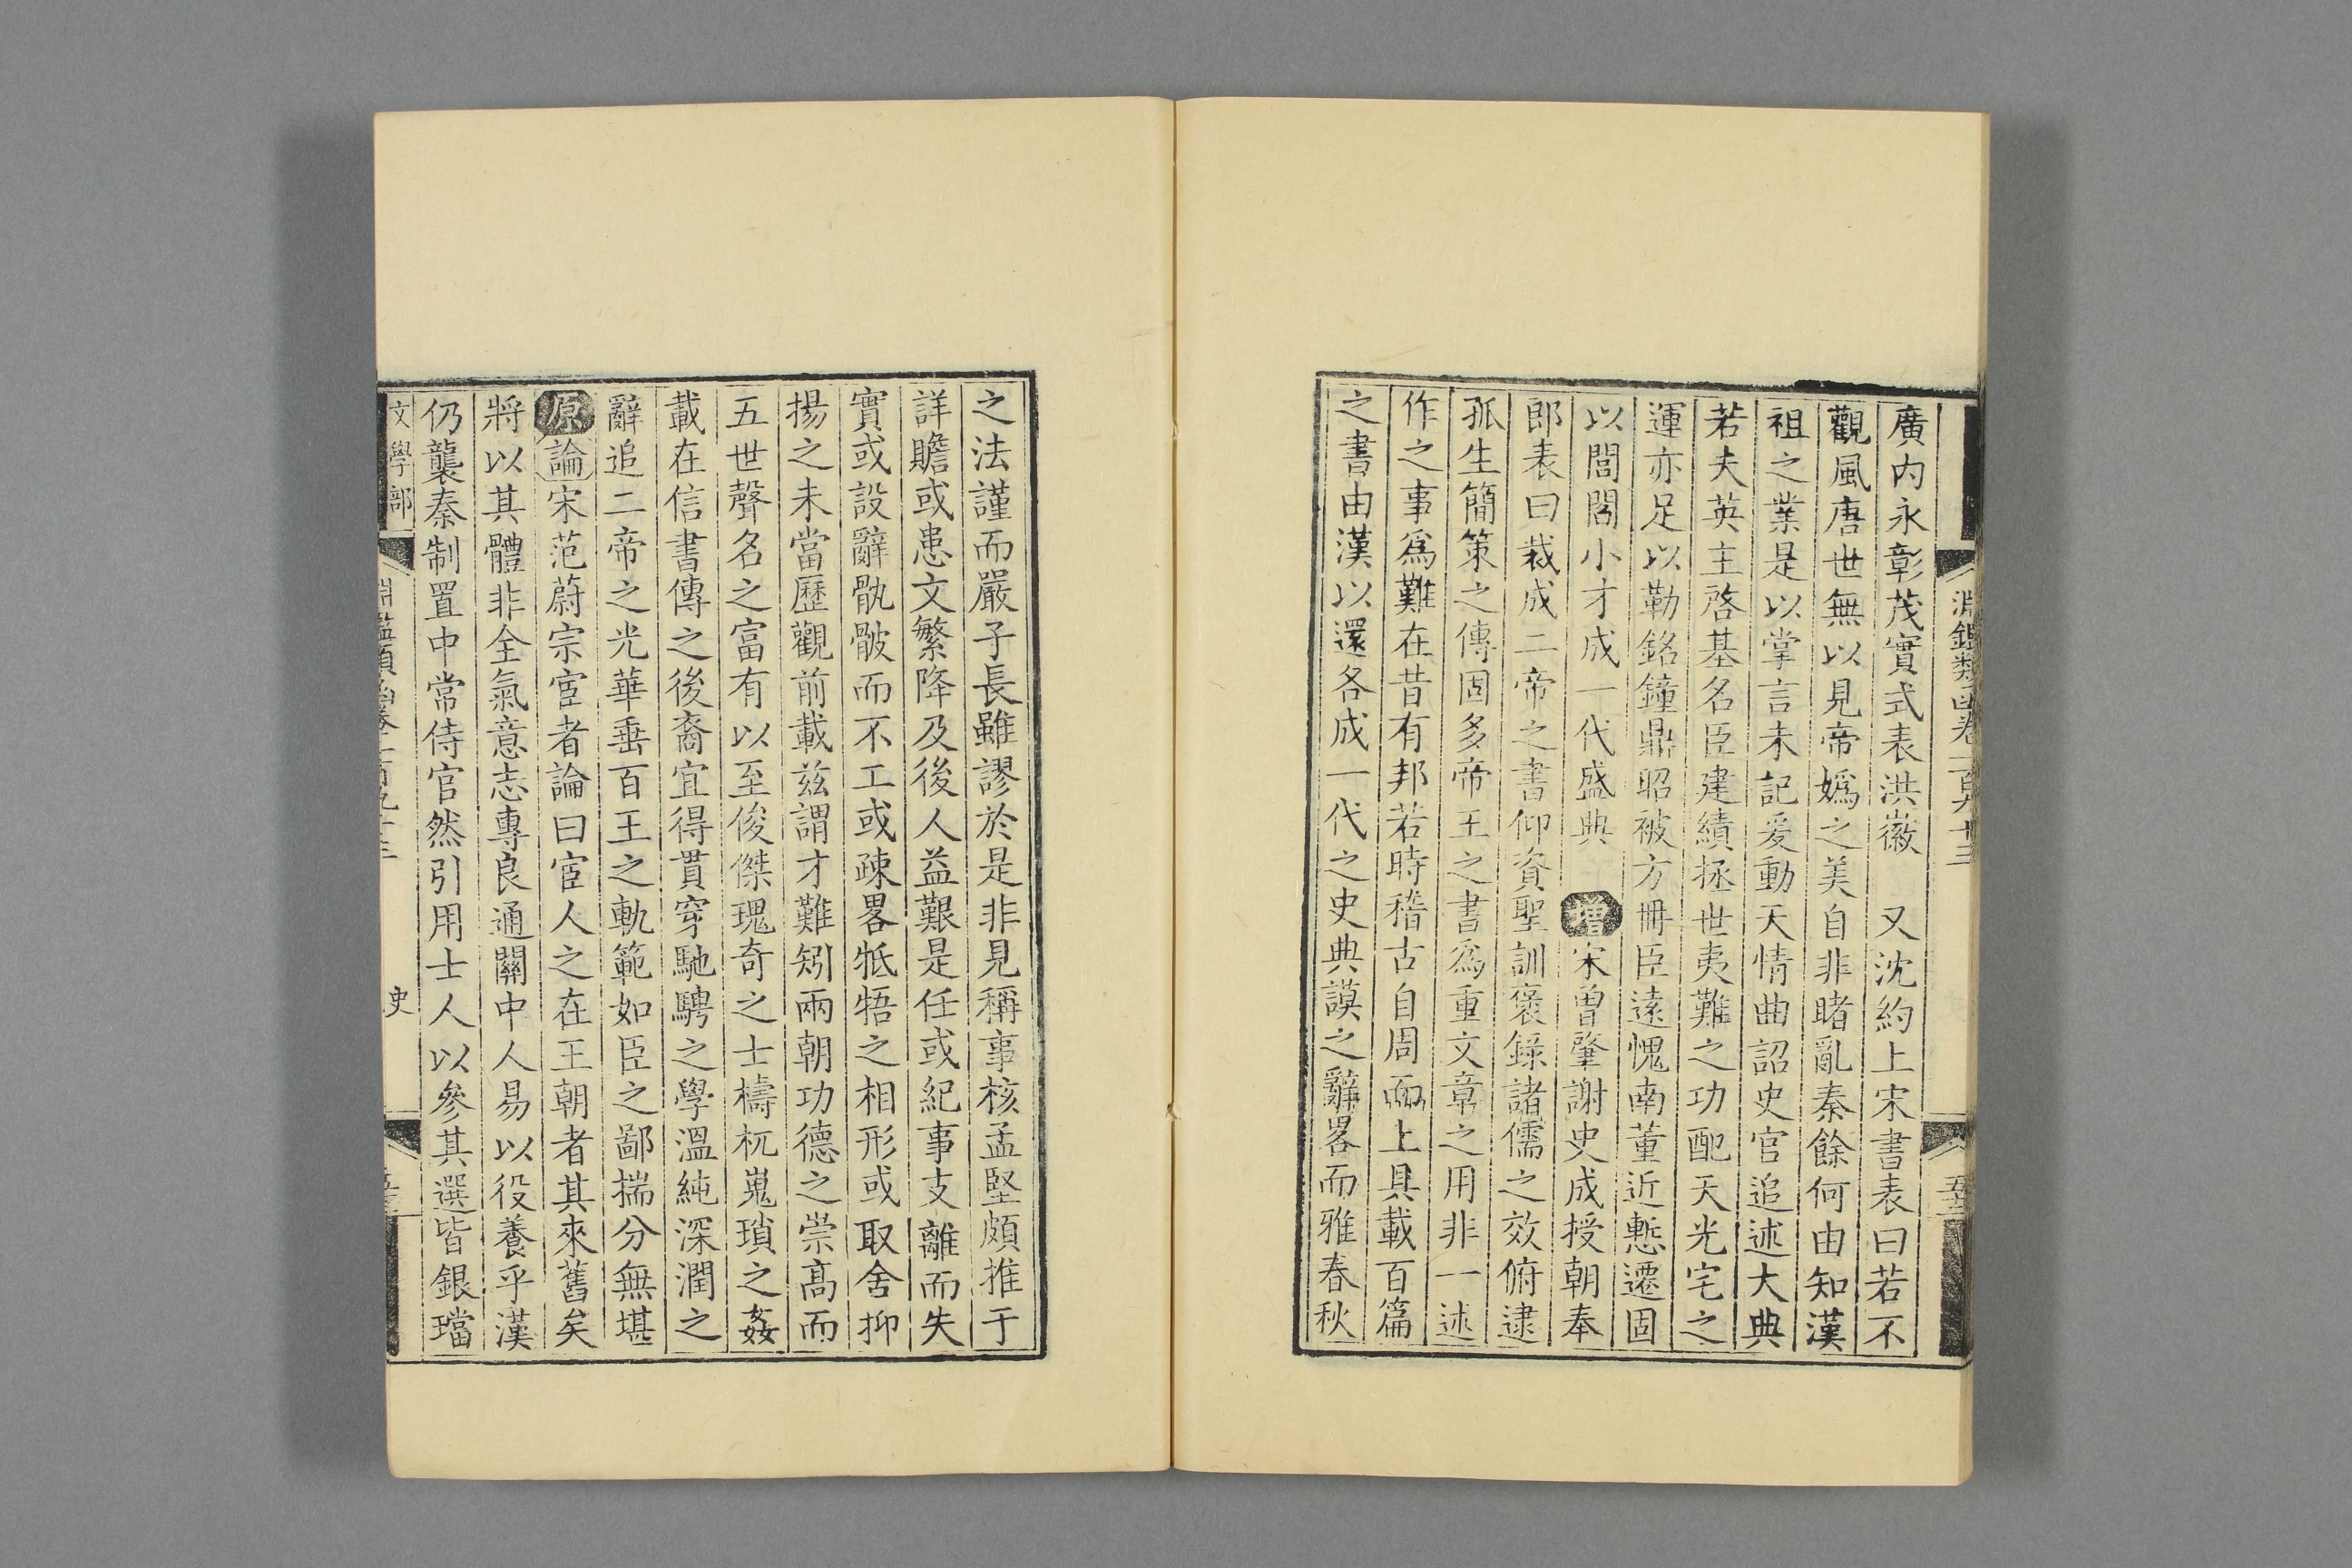 淵鑑類函卷一百九十三
廣内永彰茂實式表洪徽　又沈約上宋書表曰若不
觀風唐世無以見帝嬀之美自非睹亂秦餘何由知漢
祖之業是以掌言未記爰動天情曲詔史官追述大典
若夫英主啓基名臣建績拯世夷難之功配天光宅之
運亦足以勒銘鐘鼎昭被方冊臣遠愧南董近慙遷固
以閭閻小才成一代盛典　增宋曾肇謝史成授朝奉
郎表曰裁成二帝之書仰資聖訓褒錄諸儒之效俯逮
孤生簡策之傳固多帝王之書爲重文章之用非一述
作之事爲難在昔有邦若時稽古自周而上具載百篇
之書由漢以還各成一代之史典謨之辭畧而雅春秋
之法謹而嚴子長雖謬於是非見稱事核孟堅頗推于
詳贍或患文繁降及後人益艱是任或紀事支離而失
實或設辭骫骳而不工或疎畧牴牾之相形或取舍抑
揚之未當歷觀前載兹謂才難矧兩朝功德之崇高而
五世聲名之富有以至俊傑瑰奇之士檮杌嵬瑣之姦
載在信書傳之後裔宜得貫穿馳騁之學溫純深潤之
辭追二帝之光華垂百王之軌範如臣之鄙揣分無堪
原論宋范蔚宗宦者論曰宦人之在王朝者其來舊矣
將以其體非全氣意志專良通關中人易以役養乎漢
仍襲秦制置中常侍官然引用士人以參其選皆銀璫
文學部
史